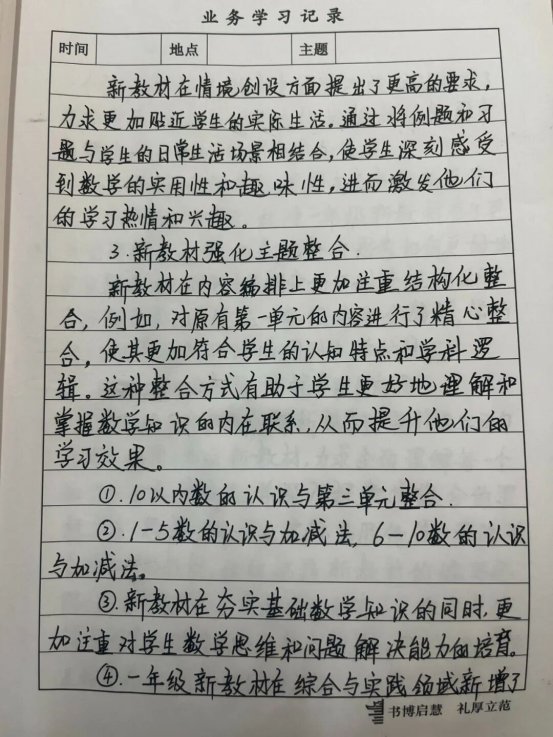 业务学习记录
时间 地点 主题
新教材在情境创设方面提出了更高的要求,
力求更加贴近学生的实际生活。通过将例题和习
题与学生的日常生活场景相结合,使学生深刻感受
到数学的实用性和趣味性,进而激发他们
的学习热情和兴趣。
3.新教材强化主题整合.
新教材在内容编排上更加注重结构化整
合,例如,对原有第一单元的内容进行了精心整
合,使其更加符合学生的认知特点和学科逻
辑。这种整合方式有助于学生更好地理解和
掌握数学知识的内在联系,从而提升他们的
学习效果。
①.10以内数的认识与第三单元整合.
②.1-5数的认识与加减法,6-10数的认识
与加减法。
③.新教材在夯实基础数学知识的同时,更
加注重对学生数学思维和问题解决能力的培育。
④.一年级新教材在综合与实践领域新增了
书博启慧 礼厚立范